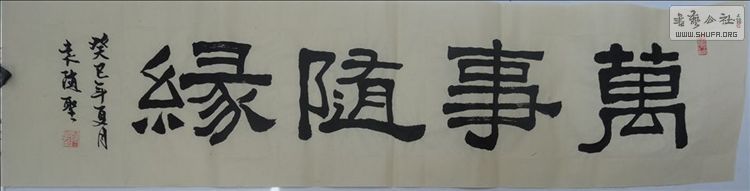 萬事隨緣
癸巳年夏月
袁隨聖
書藝公社
WWW.SHUFA.ORG